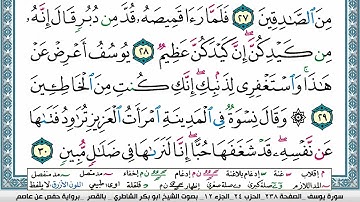 مِنَ ٱلصَّٰدِقِينَ ٢٧ فَلَمَّا رَءَا قَمِيصَهُۥ قُدَّ مِن دُبُرٍ قَالَ إِنَّهُۥ
مِن كَيْدِكُنَّ إِنَّ كَيْدَكُنَّ عَظِيمٌ ٢٨ يُوسُفُ أَعْرِضْ عَنْ
هَٰذَا وَٱسْتَغْفِرِى لِذَنۢبِكِ إِنَّكِ كُنتِ مِنَ ٱلْخَاطِـِٔينَ
٢٩ وَقَالَ نِسْوَةٌ فِى ٱلْمَدِينَةِ ٱمْرَأَتُ ٱلْعَزِيزِ تُرَٰوِدُ فَتَىٰهَا
عَن نَّفْسِهِۦ قَدْ شَغَفَهَا حُبًّا إِنَّا لَنَرَىٰهَا فِى ضَلَٰلٍ مُّبِينٍ ٣٠
سورة يوسف الصفحة ٢٣٨ الحزب ٢٤ الجزء ١٢ بصوت الشيخ ابو بكر الشاطري - بالقصر - برواية حفص عن عاصم